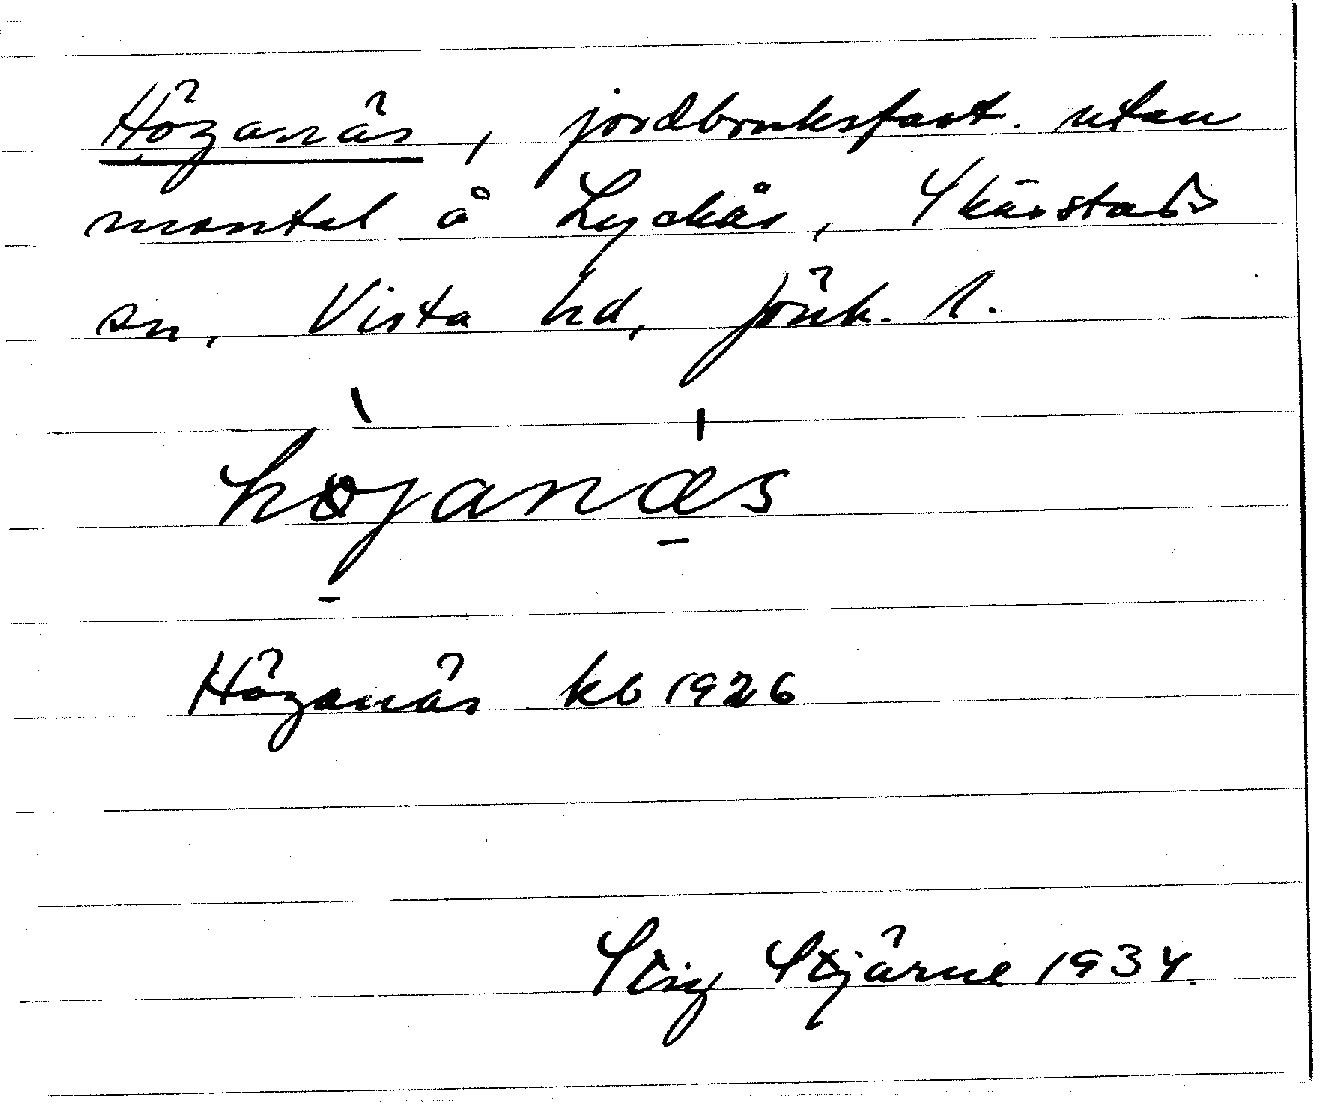 Höganäs, jordbruksfast. utan
mantal å Lyckås, Skärstads
sn, Vista hd, Jönk. l.
højanæs
Höganäs kb 1926
Stig Stjärne 1934.